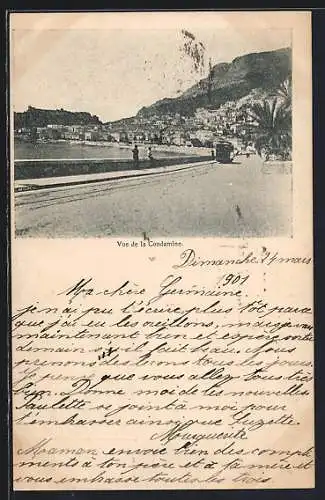 Vue de la Condamine.
Dimanche 24 mars
1901
Ma chère Germaine
je n'ai pu t'écrire plus tôt parce
que j'ai eu les oreillons, mais
maintenant bien et espère sortir
demain s'il fait beau. Nous
prenons des bains tous les jours.
Je pense que vous allez tous très
bien. Donne moi de tes nouvelles
Paulette se joint à moi pour
t'embrasser ainsi que Suzette.
Marguerite
Maman envoie bien des compli
ments à ton père et à ta mère et
vous embrasse toutes les trois